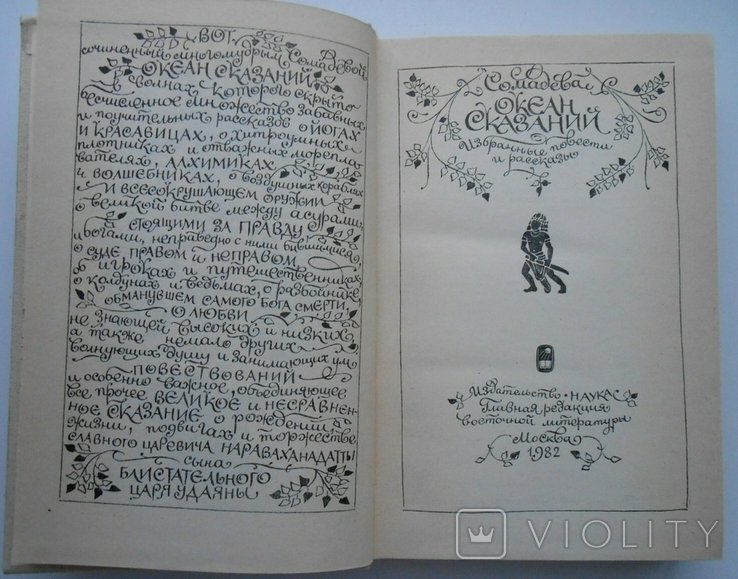 ВОТ
сочиненный многомудрым Сомадевой
ОКЕАН СКАЗАНИЙ
в волнах которого скрыто
бесчисленное множество забавных
и поучительных рассказов о йогах
и красавицах, о хитроумных
плотниках и отважных морепла-
вателях, алхимиках
и волшебниках, о воздушных кораблях
и всесокрушающем оружии
о великой битве между асурами,
стоящими за правду,
и богами, неправедно с ними бившимися,
о суде правом и неправом,
об игроках и путешественниках,
о колдунах и ведьмах, о разбойнике,
обманувшем самого бога смерти,
о любви
не знающей высоких и низких,
а также немало других
волнующих душу и занимающих ум
ПОВЕСТВОВАНИЙ
и особенно важное, объединяющее
все прочее ВЕЛИКОЕ и НЕСРАВНЕН-
НОЕ СКАЗАНИЕ о рождении
жизни, подвигах и торжестве
славного царевича НАРАВАХАНАДАТТЫ
сына
БЛИСТАТЕЛЬНОГО
ЦАРЯ УДАЯНЫ
Сомадева
ОКЕАН
СКАЗАНИЙ
Избранные повести
и рассказы
Издательство «НАУКА»
Главная редакция
восточной литературы
Москва
1982
VIOLITY